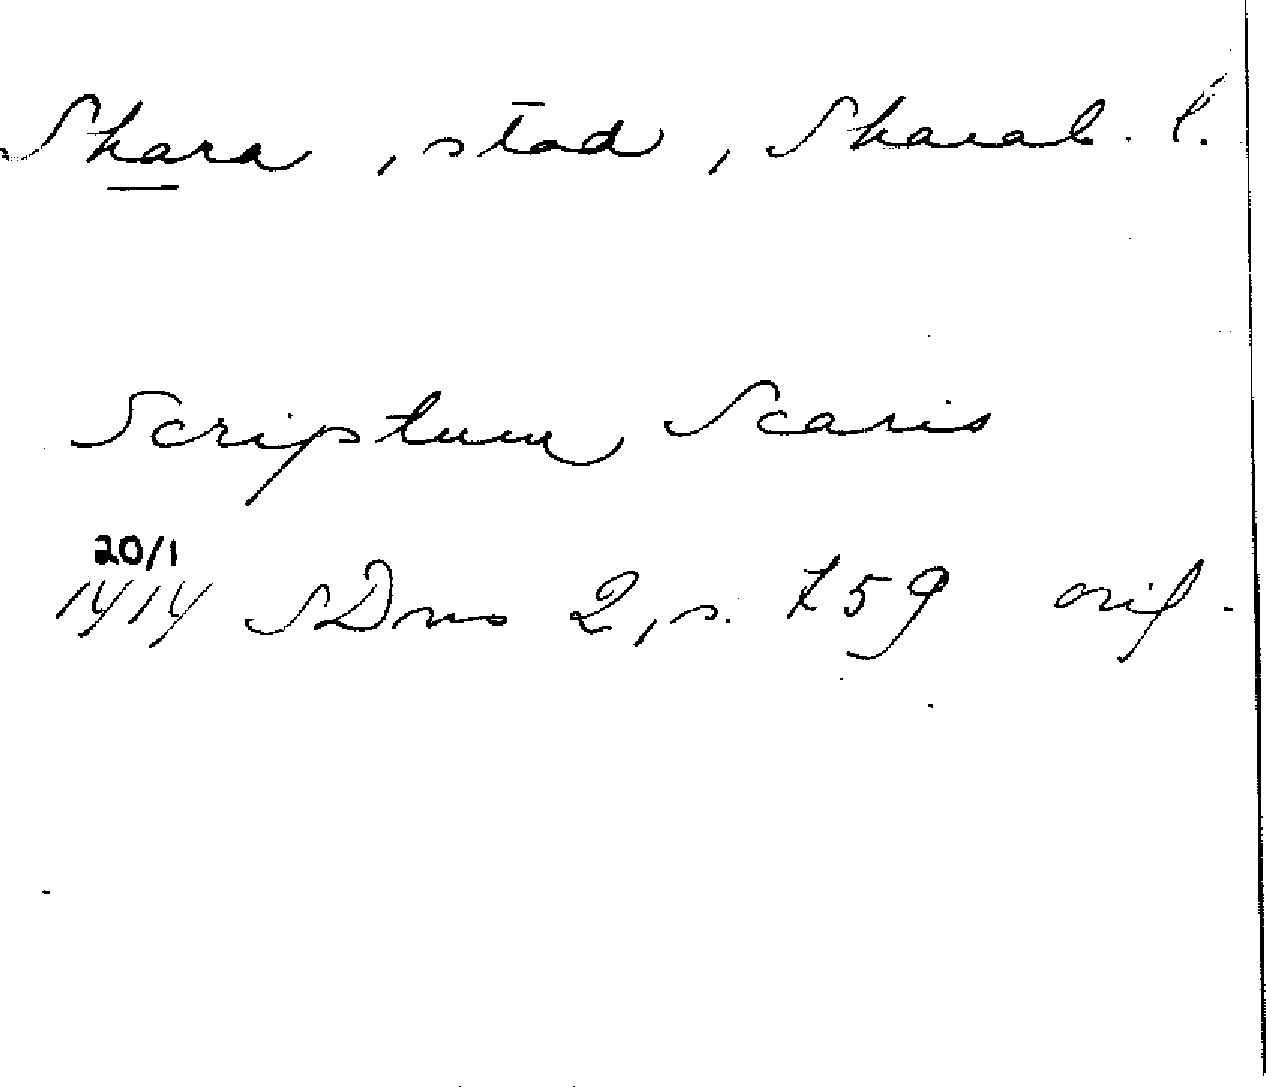 Skara, stad, Skarab. l.
Scriptum Scaris
20/1
1414 SDns 2, s. 759 orig.